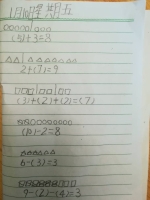 星期五
(5)+3=8
2+(7)=9
(3)+(2)+(2)=(7)
(10)-2=8
6-(3)=3
9-(2)-(4)=3